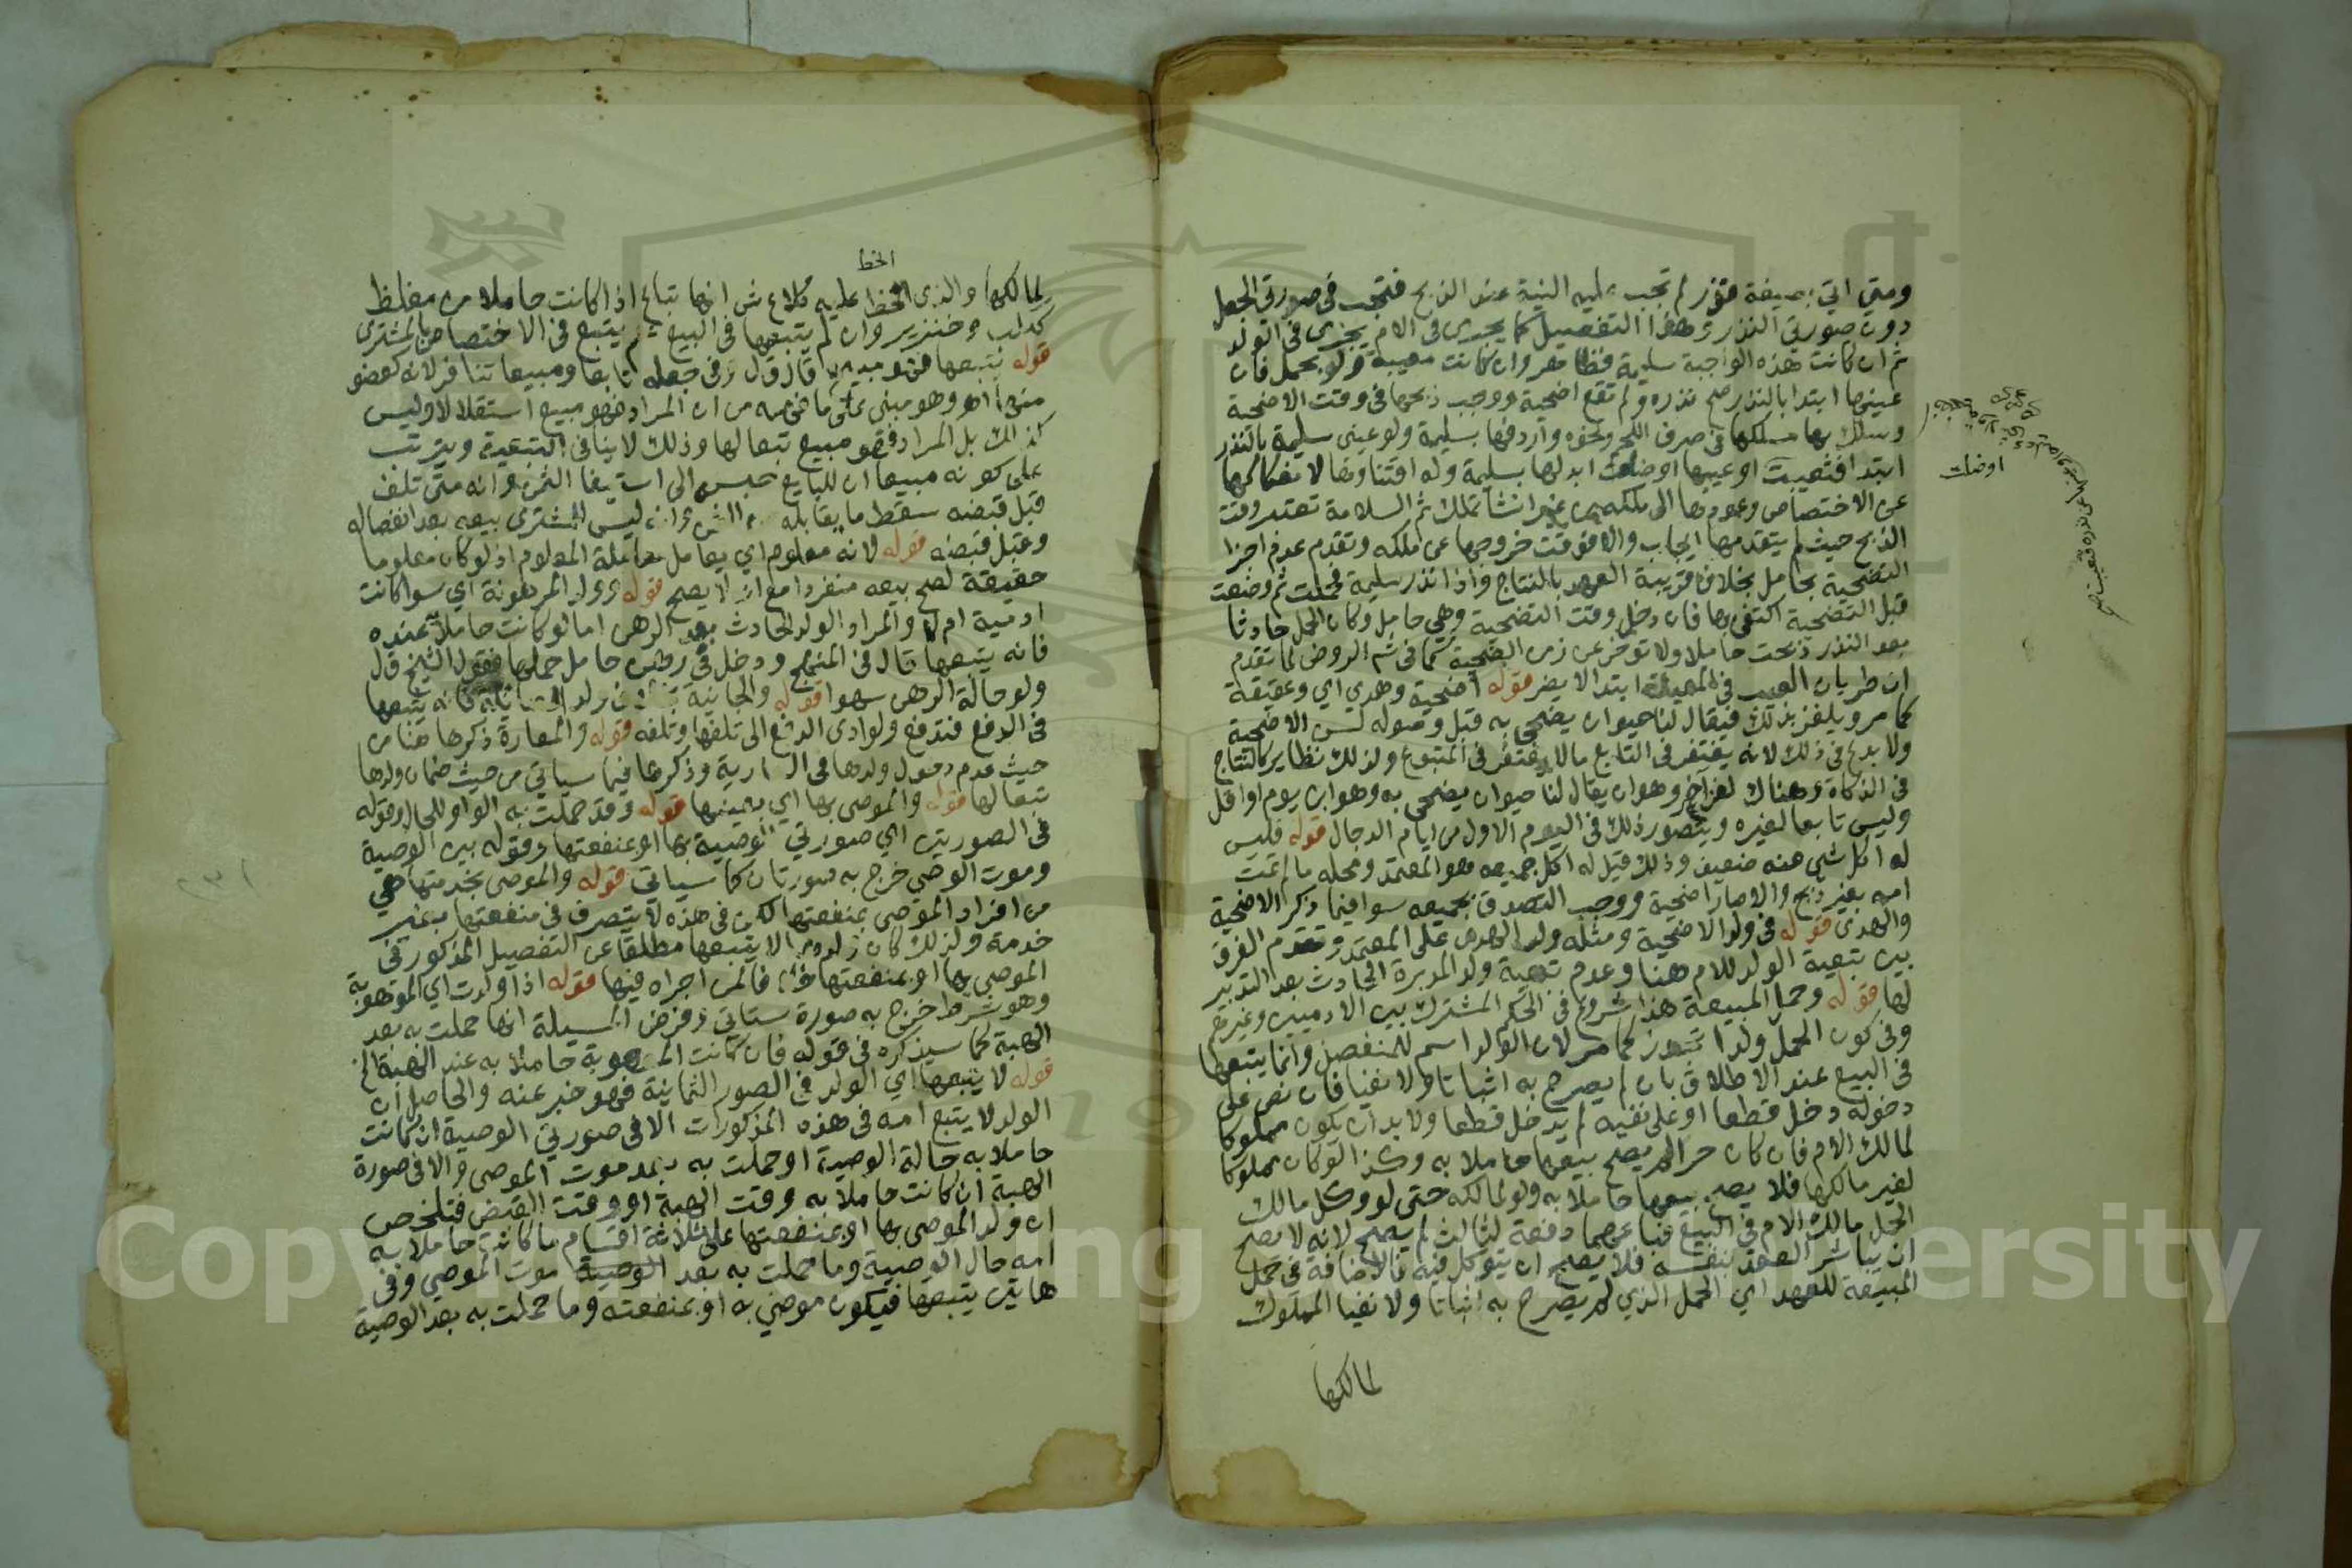 ومتي اتي بصيغة نذر لم تجب عليه النية عند الذبح فتجب في صورتي الجعل
دون صورتي النذر وهذا التفصيل كما يجري في الام يجري في الولد
ثم ان كانت هذه الواجبة سليمة فظاهر وان كانت معيبة ولو بحمل فان
عينها ابتدا بالنذر صح نذره ولم تقع اضحية ووجب ذبحها في وقت الاضحية
وسلك بها مسلكها في صرف اللحم ونحوه واردفها بسليمة ولو عينى سليمة بالنذر
ابتدا فتعيبت او عيبها او ضلت ابدلها بسليمة وله اقتناوها لانفكاكها
اوضلت
عن الاختصاص وعودها الى ملكه من غير انشا تملك ثم السلامة تعتبر وقت
الذبح حيث لم يتقدمها ايجاب والا فوقت خروجها عن ملكه وتقدم عدم اجزا
التضحية بحامل بخلاف قريبة العهد بالنتاج واذا نذر سليمة فحملت ثم وضعت
قبل التضحية اكتفى بها فان دخل وقت التضحية وهي حامل وكان الحمل حادثا
بعد النذر ذبحت حاملا ولا توخر عن زمن التضحية كما في شم الروض لما تقدم
ان طريان العيب في المعينة ابتدا لا يضر قوله اضحية وهدي اي وعقيقة
كما مر ويلغز بذلك فيقال لنا حيوان يضحي به قبل وصوله لسن الاضحية
ولا بدع في ذلك لانه يغتفر في التابع مالا يغتفر في المتبوع ولذلك نظاير كالنتاج
في الزكاة وهناك لغز آخر وهو ان يقال لنا حيوان يضحى به وهو ابن يوم او اقل
وليس تابعا لغيره ويتصور ذلك في اليوم الاول من ايام الدجال قوله فليس
له اكل شي منه ضعيف وذلك قيل له اكل جميعه وهو المعتمد ومحله مالم تمت
امه بغير ذبح والا صار اضحية ووجب التصدق بجميعه سوا فيما ذكر الاضحية
والهدى قوله في ولد الاضحية ومثله ولد الهدى على المعتمد وتقدم الفرق
بين تبعية الولد للام هنا وعدم تبعية ولد المدبرة الحادث بعد التدبير
لها قوله وحمل المبيعة هذا شروع في الحكم المشترك بين الادميين وغيرهم
وفي كون الحمل ولدا تجوز كما مر لان الولد اسم للمنفصل وانما يتبعها
في البيع عند الاطلاق بان لم يصرح به اثباتا ولا نفيا فان نص على
دخوله دخل قطعا او على نفيه لم يدخل قطعا ولا بد ان يكون مملوكا
لمالك الام فان كان حرا لم يصح بيعها حاملا به وكذا لو كان مملوكا
لغير مالكها فلا يصح بيعها حاملا به ولو لمالكه حتى لو وكل مالك
الحمل مالك الام في البيع فباعهما دفعة لثالث لم يصح لانه لا يصح
ان يباشر العقد بنفسه فلا يصح ان يتوكل فيه فالاضافة في حمل
المبيعة للعهد اي الحمل الذي لم يصرح به اثباتا ولا نفيا المملوك
لمالكها
الخط
لمالكها والذي الحظ عليه كلام ش انها تباع اذا كانت حاملا من مغلظ
ككلب وخنزير وان لم يتبعها في البيع يتبع في الاختصاص بالمشترى
قوله يتبعها قال ق ل وفي جعله تابعا ومبيعا تنافر لانه كعضو
منها اهو وهو مبنى على ما فهمه من ان المراد فهو مبيع استقلالا وليس
كذلك بل المراد فهو مبيع تبعا لها وذلك لا ينافي التبعية ويترتب
على كونه مبيعا ان للبايع حبسه الى استيفا الثمن وانه متى تلف
قبل قبضه سقط ما يقابله من الثمن وانه ليس للمشترى بيعه بعد انفصاله
وقبل قبضه قوله لانه معلوم اي يعامل معاملة المعلوم اذ لو كان معلوما
حقيقة لصح بيعه منفردا مع انه لا يصح قوله وولد المرهونة اي سوا كانت
ادمية ام لا والمراد الولد الحادث بعد الرهن اما لو كانت حاملا عنده
فانه يتبعها قال في المنهج ودخل في رهن حامل حملها فقول الشيخ ق ل
ولو حالة الرهن سهوا قوله والجانية فانه يتبعها
في الدفع فتدفع ولو ادى الدفع الى تلفها وتلفه قوله والمعارة ذكرها هنا من
حيث عدم دخول ولدها في العارية وذكرها فيما سياتي من حيث ضمان ولدها
تبعا لها قوله والموصى بها اي بعينها قوله وقد حملت به الواو للحال وقوله
في الصورتين اي صورتي الوصية بها او بمنفعتها وقوله بين الوصية
وموت الوصي خرج به صورتان كما سياتي قوله والموصى بخدمتها هي
من افراد الموصى بمنفعتها لكن في هذه لا يتصرف في منفعتها بغير
خدمة ولذلك كان ولدها لا يتبعها مطلقا عن التفصيل المذكور في
الموصى بها او بمنفعتها فالمن اجراه فيها قوله اذا ولدت اي الموهوبة
وهو شرط خرج به صورة ستاتي وفرض المسيلة انها حملت به بعد
الهبة كما سيذكره في قوله فان كانت الموهوبة حاملا به عند الهبة الخ
قوله لا يتبعها اي الولد في الصور الثمانية فهو خبر عنه والحاصل ان
الولد لا يتبع امه في هذه المذكورات الا في صورتي الوصية ان كانت
حاملا به حالة الوصية او حملت به بعد موت الموصى والا في صورة
الهبة ان كانت حاملا به وقت الهبة او وقت القبض فتلخص
ان ولد الموصى بها او بمنفعتها على ثلاثة اقسام ما كانت حاملا به
امه حال الوصية وما حملت به بعد الوصية موت الموصي وفي
هاتين يتبعها فيكون موصى به او بمنفعته وما حملت به بعد الوصية
Copy King University